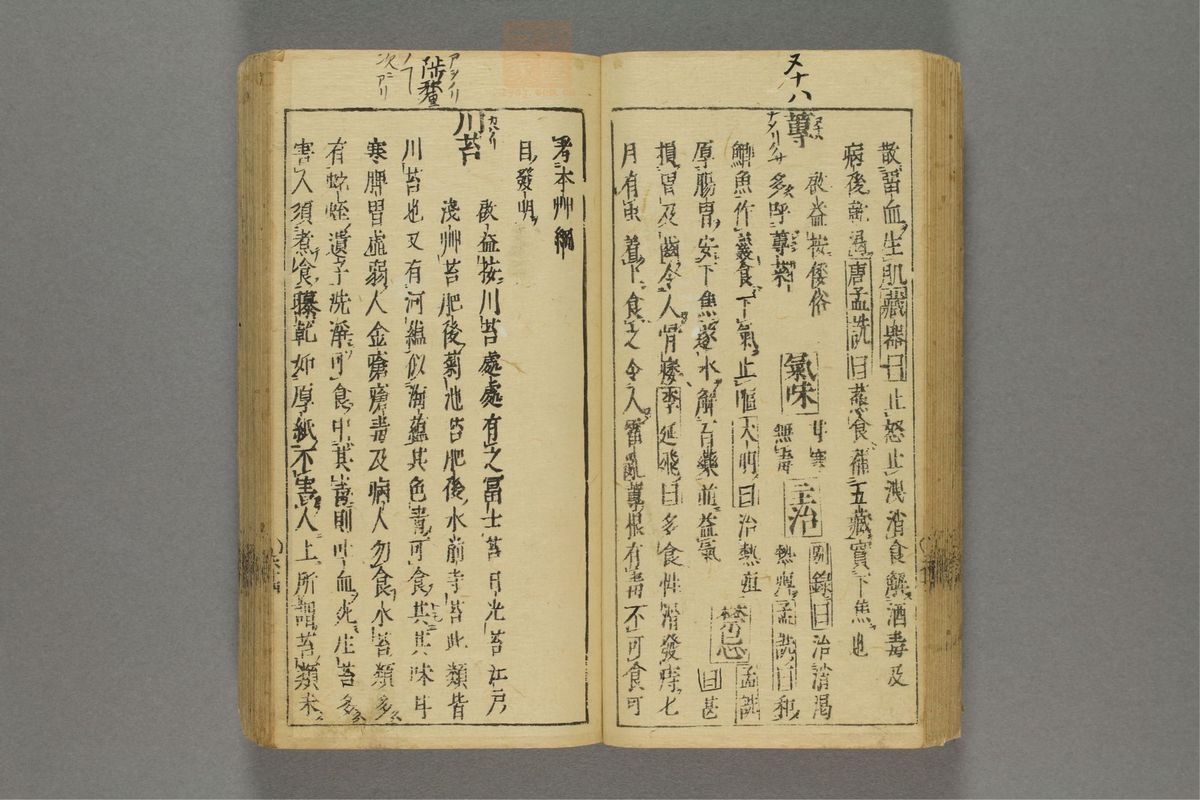 散留血生肌藏器曰止怒止洩消食解酒毒及
病後乾渴唐孟詵曰蒸食補五藏實下焦也
又十八
蓴
啟益按倭俗
多呼蓴菜
氣味
甘寒
無毒
主治
別錄曰治消渴
熱痺孟詵曰和
鯽魚作羹食下氣止嘔大明曰治熱疸
厚腸胃安下焦逐水解百藥並益氣
禁忌
孟詵
曰甚
損胃及齒令人骨痿李延飛曰多食性滑發痔七
月有虫着上食之令人霍亂蓴根有毒不可食可
考本艸綱
目發明
川苔
啟益按川苔處處有之冨士苔日光苔江戶
淺艸苔肥後菊池苔肥後水前寺苔此類皆
川苔也又有河蘊似海蘊其色青可食其其味甘
寒脾胃虛弱人金瘡瘡毒及病人勿食水苔類多
有蛇蛭遺子洗淨可食中其毒則吐血死生苔多
害人須煮食曝乾如厚紙不害人上所謂苔類未
陟釐
アヲノリ
次ニアリ